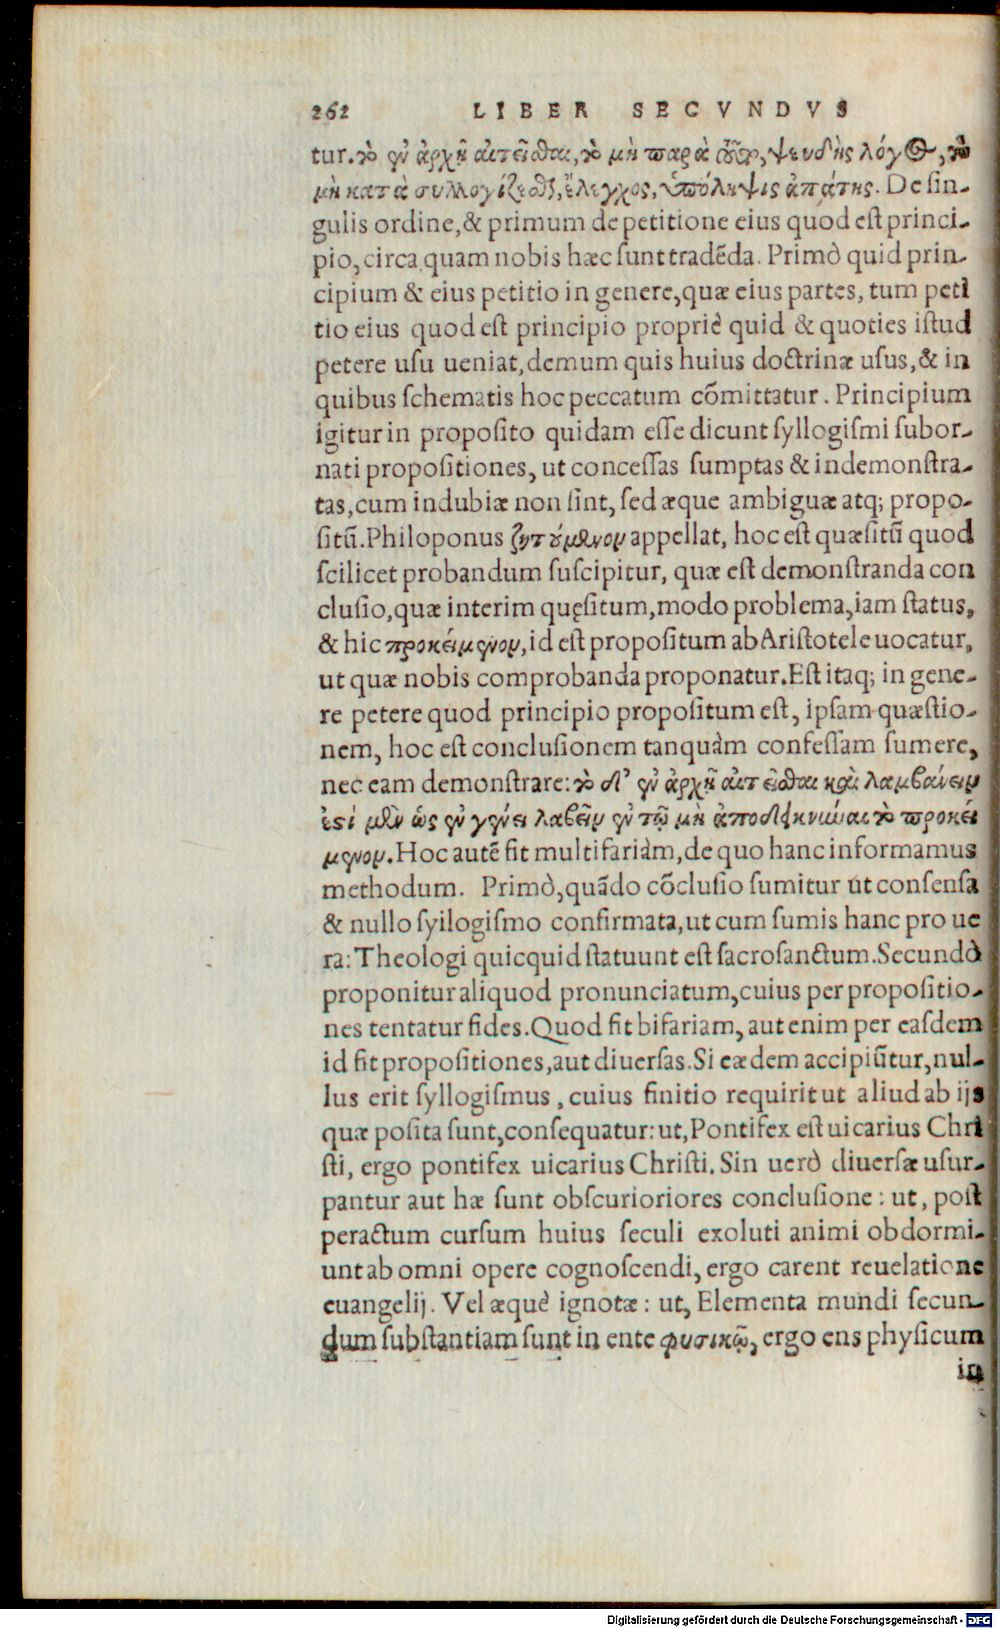 262 LIBER SECVNDVS
tur. τὸ ἐν ἀρχῇ αἰτεῖσθαι, τὸ μὴ παρὰ τοῦτο, ψευδὴς λόγος, τὸ
μὴ κατὰ συλλογίζεσθ, ἔλεγχος, ὑπόληψις ἀπάτης. De ſin-
gulis ordine, & primum de petitione eius quod eſt princi-
pio, circa quam nobis hæc ſunt tradēda. Primò quid prin-
cipium & eius petitio in genere, quæ eius partes, tum peti
tio eius quod eſt principio propriè quid & quoties iſtud
petere uſu ueniat, demum quis huius doctrinæ uſus, & in
quibus ſchematis hoc peccatum cōmittatur. Principium
igitur in propoſito quidam eſſe dicunt ſyllogiſmi ſubor-
nati propoſitiones, ut conceſſas ſumptas & indemonſtra-
tas, cum indubiæ non ſint, ſed æque ambiguæ atq; propo-
ſitū. Philoponus ζητούμενον appellat, hoc eſt quæſitū quod
ſcilicet probandum ſuſcipitur, quæ eſt demonſtranda con
cluſio, quæ interim quęſitum, modo problema, iam ſtatus,
& hic προκείμενον, id eſt propoſitum ab Ariſtotele uocatur,
ut quæ nobis comprobanda proponatur. Eſt itaq; in gene-
re petere quod principio propoſitum eſt, ipſam quæſtio-
nem, hoc eſt concluſionem tanquàm confeſſam ſumere,
nec eam demonſtrare: τὸ δ’ ἐν ἀρχῇ αἰτεῖσθαι καὶ λαμβάνειν
ἐστὶ μὲν ὡς ἐν γένει λαβεῖν ἐν τῷ μὴ ἀποδεικνύναι τὸ προκεί
μενον. Hoc autē fit multifariàm, de quo hanc informamus
methodum. Primò, quādo cōcluſio ſumitur ut conſenſa
& nullo ſyilogiſmo confirmata, ut cum ſumis hanc pro ue
ra: Theologi quicquid ſtatuunt eſt ſacroſanctum. Secundò
proponitur aliquod pronunciatum, cuius per propoſitio-
nes tentatur fides. Quod fit bifariam, aut enim per eaſdem
id fit propoſitiones, aut diuerſas. Si eædem accipiūtur, nul-
lus erit ſyllogiſmus, cuius finitio requirit ut aliud ab ijs
quæ poſita ſunt, conſequatur: ut, Pontifex eſt uicarius Chri
ſti, ergo pontifex uicarius Chriſti. Sin uerò diuerſæ uſur-
pantur aut hæ ſunt obſcurioriores concluſione: ut, poſt
peractum curſum huius ſeculi exoluti animi obdormi-
unt ab omni opere cognoſcendi, ergo carent reuelatione
euangelij. Vel æquè ignotæ: ut, Elementa mundi ſecun-
dum ſubſtantiam ſunt in ente φυσικῷ, ergo ens phyſicum
in
Digitalisierung gefördert durch die Deutsche Forschungsgemeinschaft - DFG